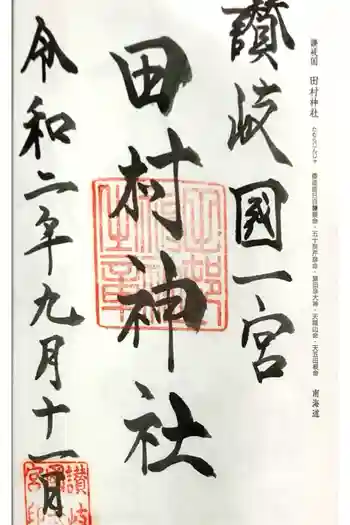 讃岐国 田村神社 たむらじんじゃ 倭迹迹日百襲姫命・五十狭芹彦命・猿田彦大神・天隠山命・天五田根命 南海道
讃岐國一宮
田村神社
令和二年九月十一日
讃岐
宮印